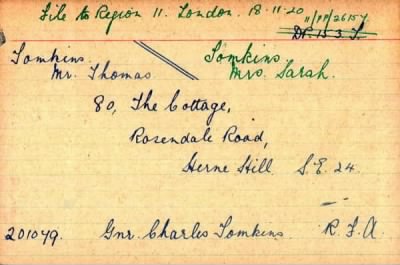 File to Region 11. London. 18-11-20
11/PP/2615 J.
DP. 15 3. T.
Tomkins, Tomkins,
Mr. Thomas Mrs. Sarah.
80, The Cottage,
Rosendale Road,
Herne Hill S.E. 24.
201079. Gnr. Charles Tomkins. R. F. A.